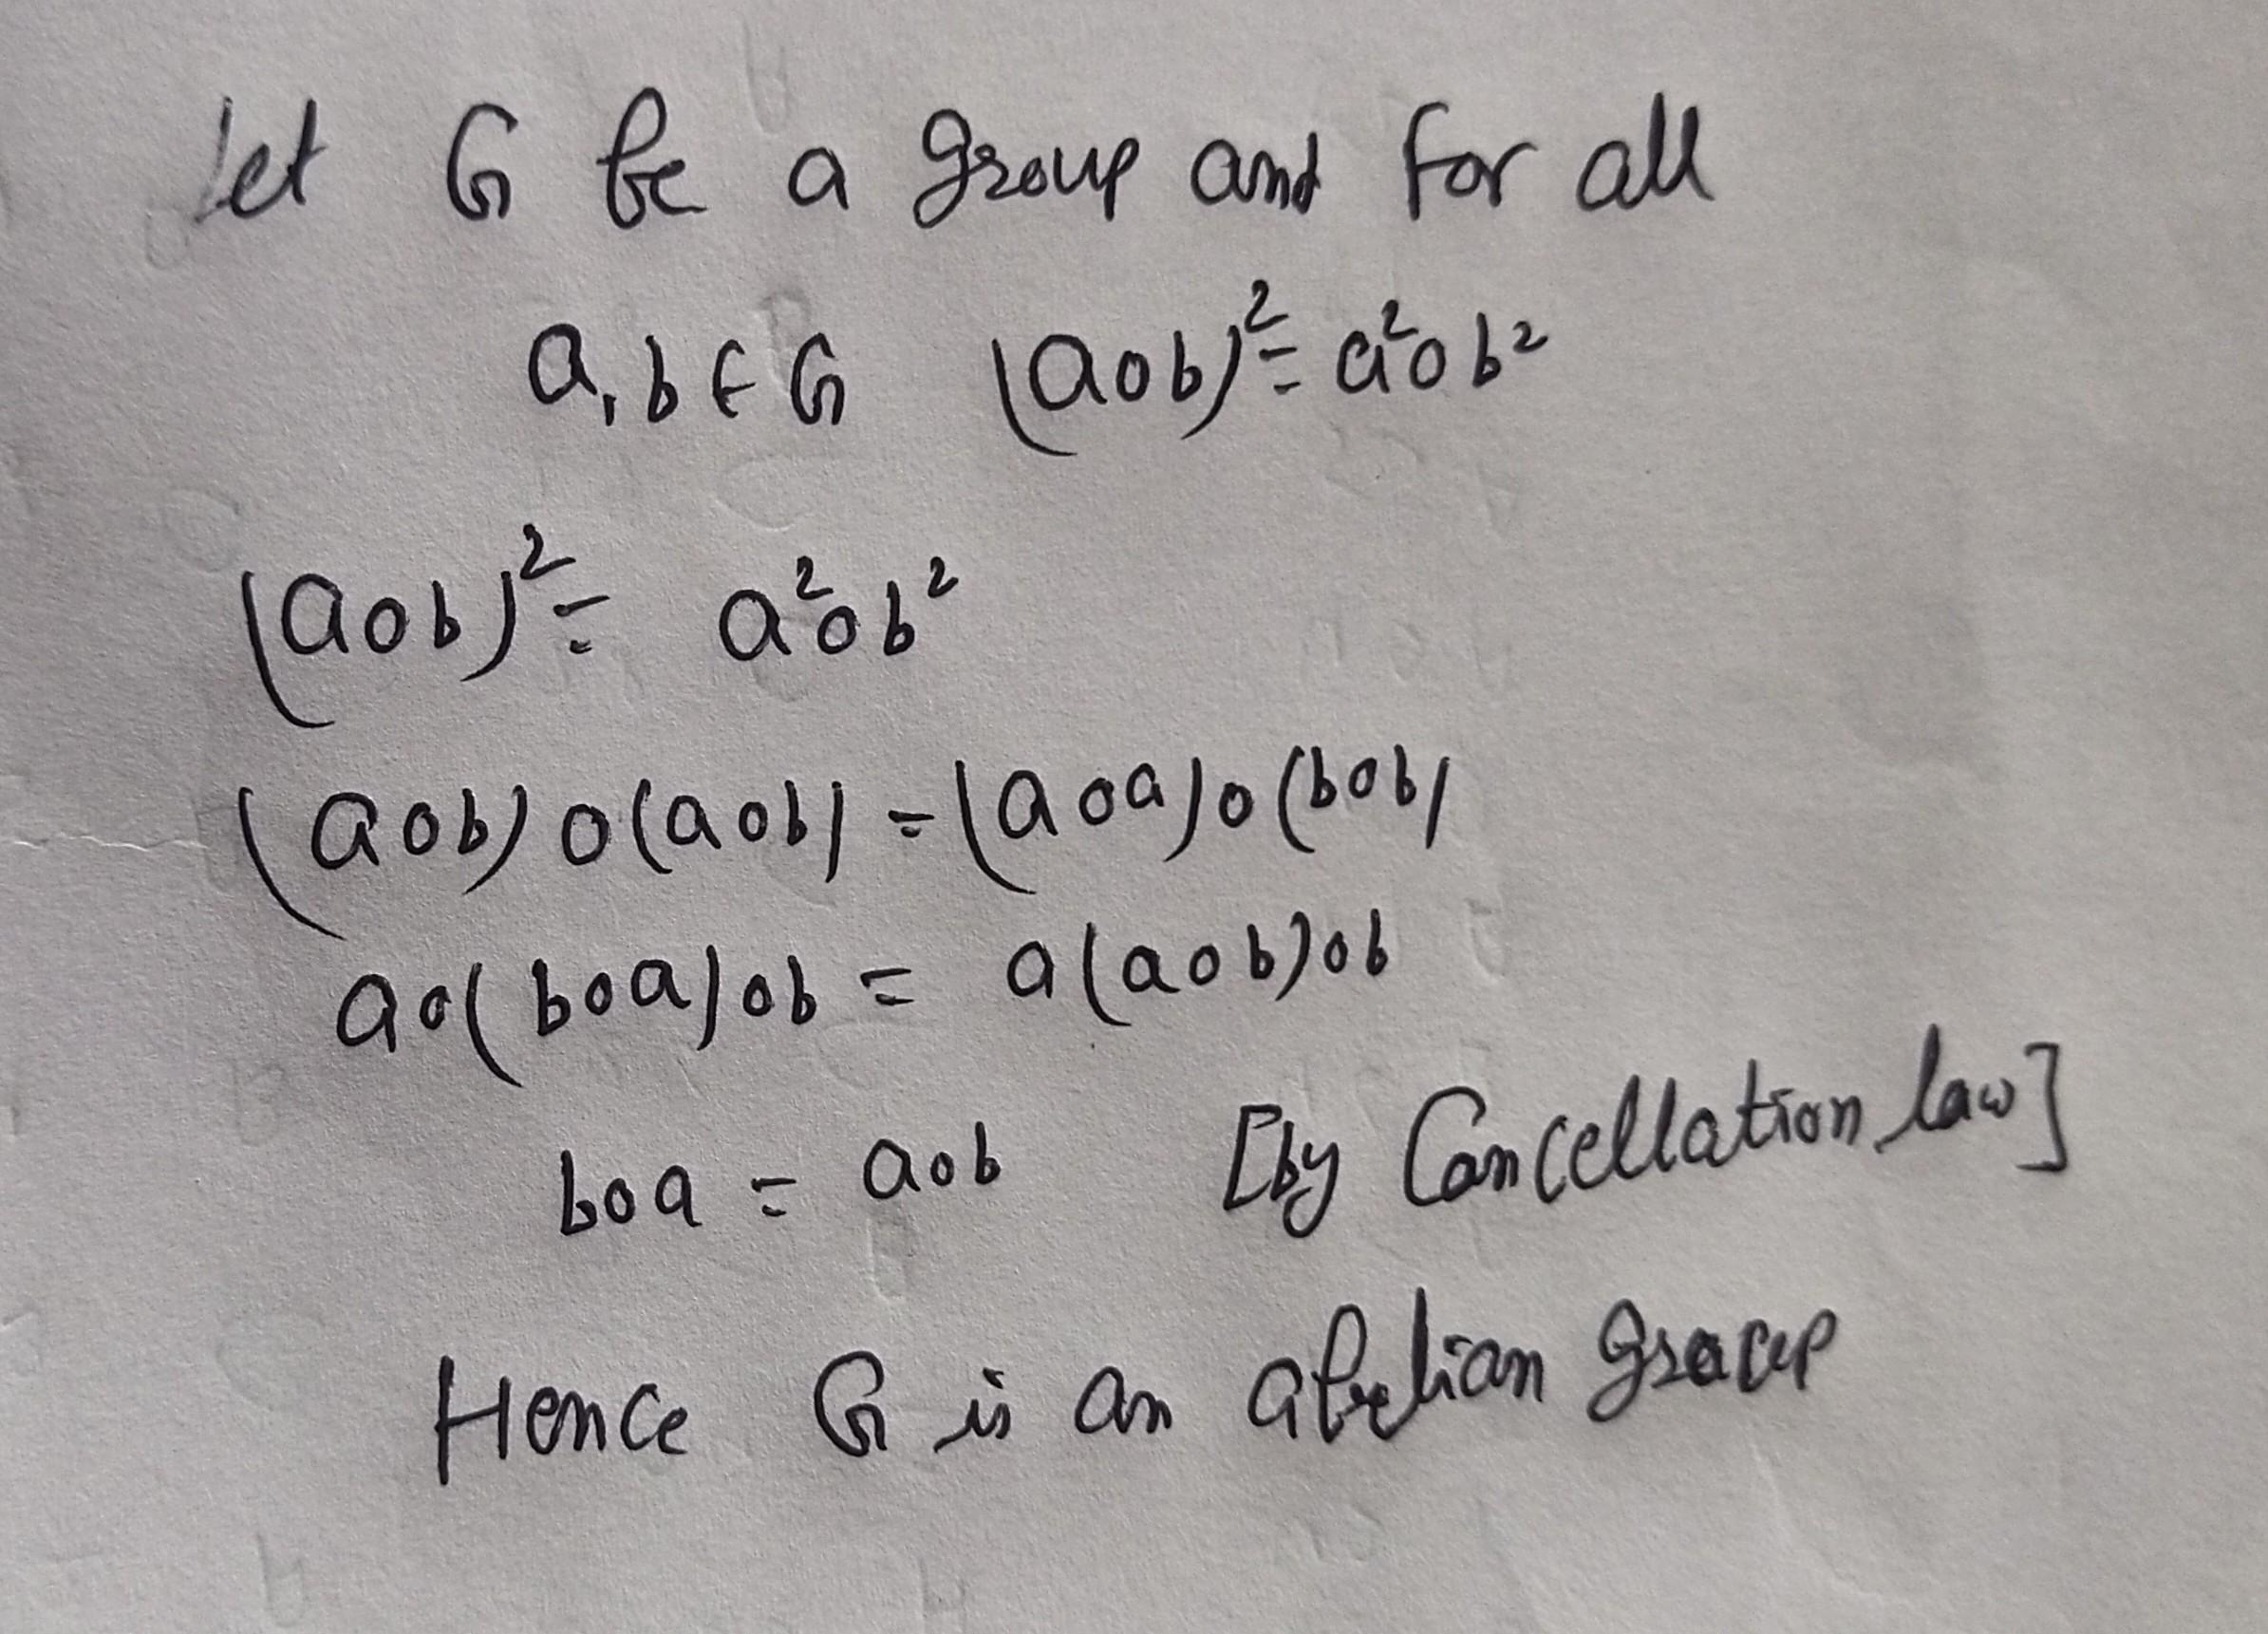 Let G be a group and for all
a, b ∈ G (aob)² = a²ob²
(aob)² = a²ob²
(aob)o(aob) = (aoa)o(bob)
ao(boa)ob = a(aob)ob
boa = aob [by Cancellation law]
Hence G is an abelian group